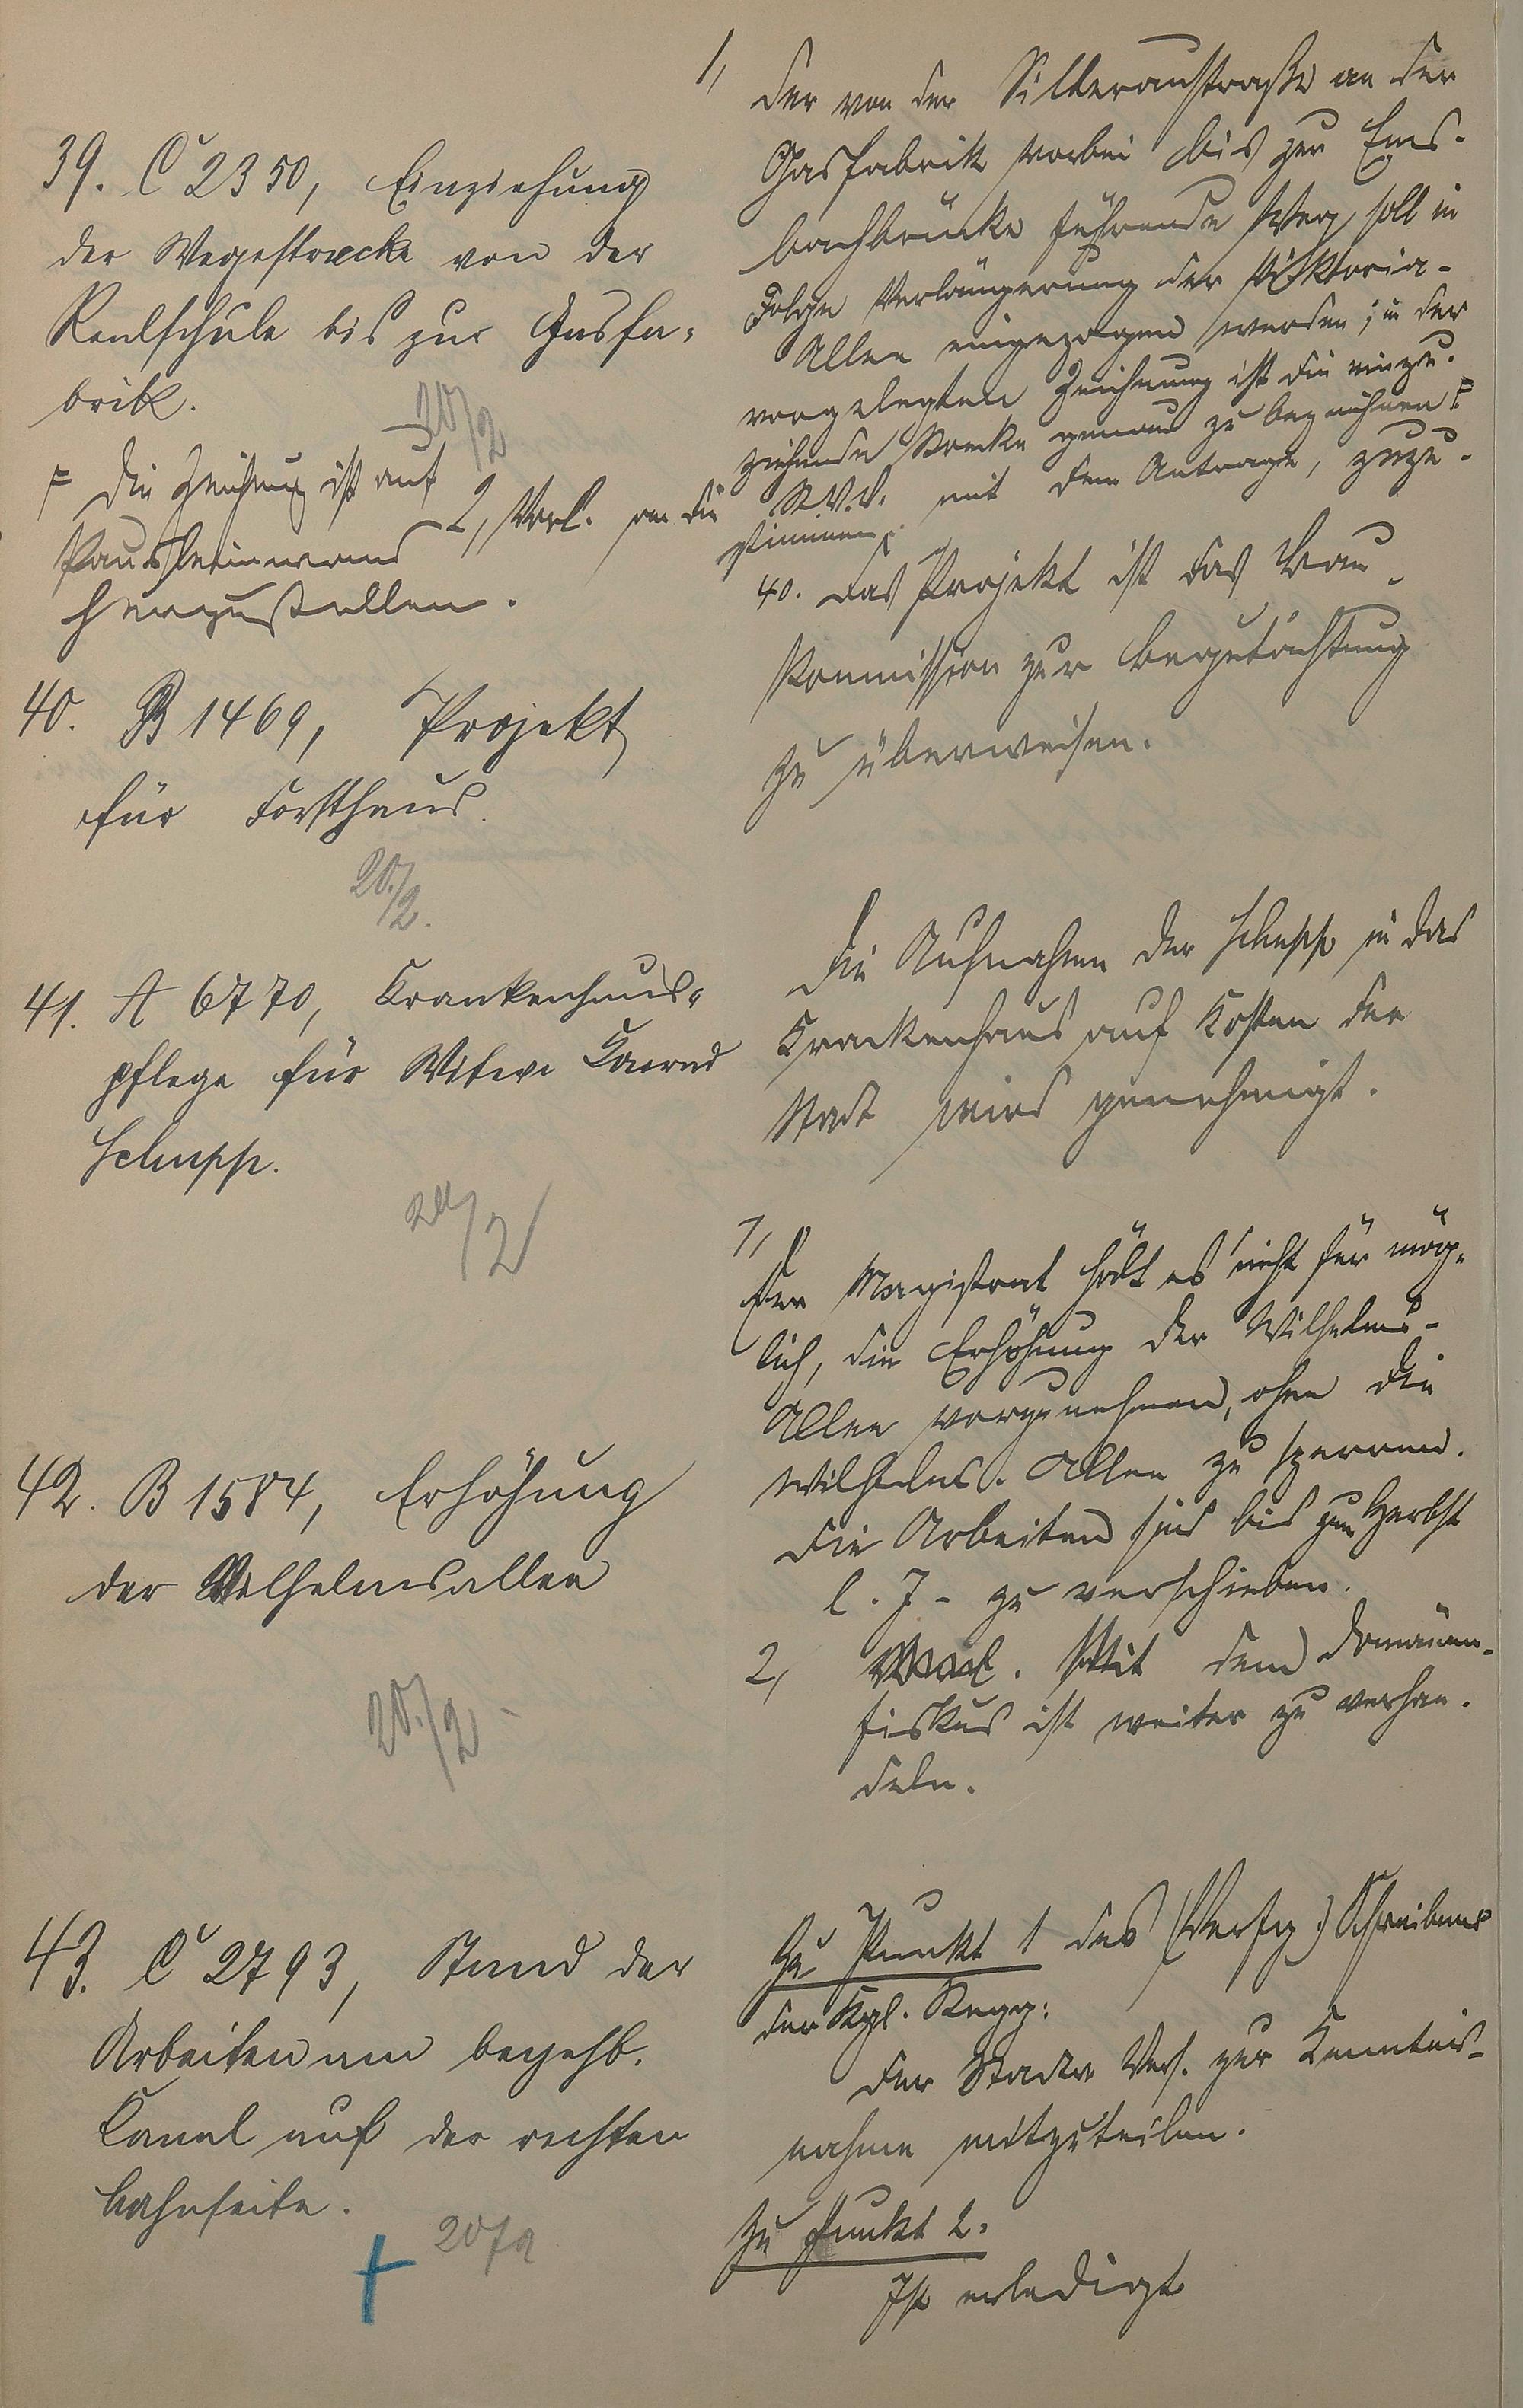 39. C 2350, Einziehung
der Wegestrecke von der
Realschule bis zur Gasfa-
brik.
20/2
F die Zeichnung ist auf
Pausleinwand
herzustellen.
1,
Der von der Silberaustraße an der
Gasfabrik vorbei bis zur Ems-
bachbrücke führende Weg soll in
Folge Verlängerung der Viktoria-
Allee eingezogen werden; in der
vorgelegten Zeichnung ist die einzu-
ziehende Strecke genau zu bezeichnen F
2, Vorl. an die St.V.V. mit dem Antrage, zuzu-
stimmen.
40. B 1469, Projekt
für Forsthaus.
20./2.
40. Das Projekt ist das Bau-
kommission zur Begutachtung
zu überweisen.
41. A 6770, Krankenhaus-
pflege für Witwe
Schupp.
20/2
Die Aufnahme der Schupp in das
Krankenhaus auf Kosten der
Stadt wird genehmigt.
42. B 1584, Erhöhung
der Wilhelmsallee
20./2
1,
Der Magistrat hält es nicht für mög-
lich, die Erhöhung der Wilhelms-
Allee vorzunehmen, ohne die
Wilhelms-Allee zu sperren.
Die Arbeiten sind bis zum Herbst
l. J. zu verschieben.
2, Mit dem Domänen-
fiskus ist weiter zu verhan-
deln.
43. C 2793, Stand der
Arbeiten am begehb.
Kanal auf der rechten
Lahnseite.
20/2
Zu Punkt 1 des (Verfg.) Schreibens
der Kgl. Regg:
Der Stadtv. Vers. zur Kenntnis-
nahme mitzuteilen.
Zu Punkt 2.
Ist erledigt